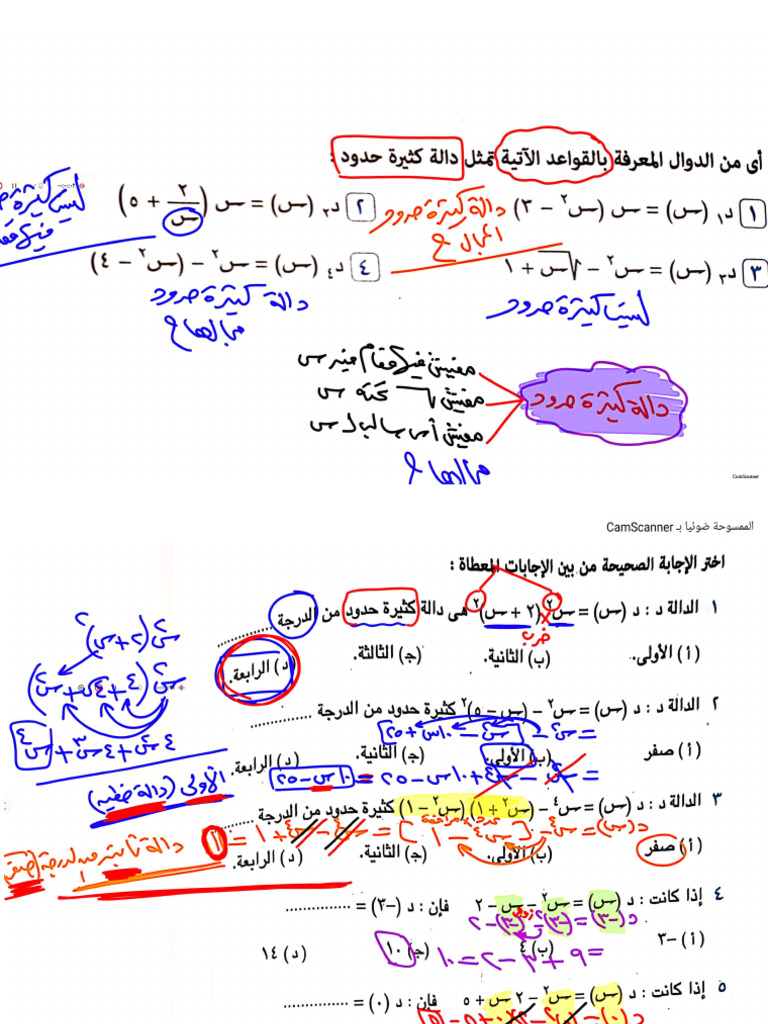 أى من الدوال المعرفة بالقواعد الآتية تمثل دالة كثيرة حدود :
١ د١ (س) = س (س٢ − ٣) دالة كثيرة حدود
٢ د٢ (س) = س (٢/س + ٥) ليست كثيرة حدود
٣ د٣ (س) = س٢ − √س + ١ ليست كثيرة حدود
٤ د٤ (س) = س٢ − (س٢ − ٤) دالة كثيرة حدود
دالة كثيرة حدود
مفيش فيها مقام فيه س
مفيش √ تحته س
مفيش أس سالب لـ س
CamScanner
الممسوحة ضوئيا بـ CamScanner
اختر الإجابة الصحيحة من بين الإجابات المعطاة :
١ الدالة د : د (س) = س٢ (٢ + س)٢ هى دالة كثيرة حدود من الدرجة ..............
ضرب
(أ) الأولى. (ب) الثانية. (جـ) الثالثة. (د) الرابعة.
س٢ (٢ + س)٢
س٢ (٤ + ٤س + س٢)
٤س٢ + ٤س٣ + س٤
٢ الدالة د : د (س) = س٢ − (س − ٥)٢ كثيرة حدود من الدرجة ..............
= س٢ − [س٢ − ١٠س + ٢٥]
(أ) صفر (ب) الأولى. (جـ) الثانية. (د) الرابعة.
= س٢ − س٢ + ١٠س − ٢٥ = ١٠س − ٢٥
الأولى (دالة خطية)
٣ الدالة د : د (س) = س٤ − (س٢ + ١) (س٢ − ١) كثيرة حدود من الدرجة ..............
د(س) = س٤ − [س٤ − ١] = س٤ − س٤ + ١ = ١
دالة ثابتة من الدرجة صفر
(أ) صفر (ب) الأولى. (جـ) الثانية. (د) الرابعة.
٤ إذا كانت : د (س) = س٢ − س − ٢ فإن : د (−٣) = ..............
د(−٣) = (−٣)٢ − (−٣) − ٢
(أ) −٣ (ب) ٤ (جـ) ١٠ (د) ١٤
= ٩ + ٣ − ٢ = ١٠
٥ إذا كانت : د (س) = س٢ − ٢ س + ٥ فإن : د (٠) = ..............